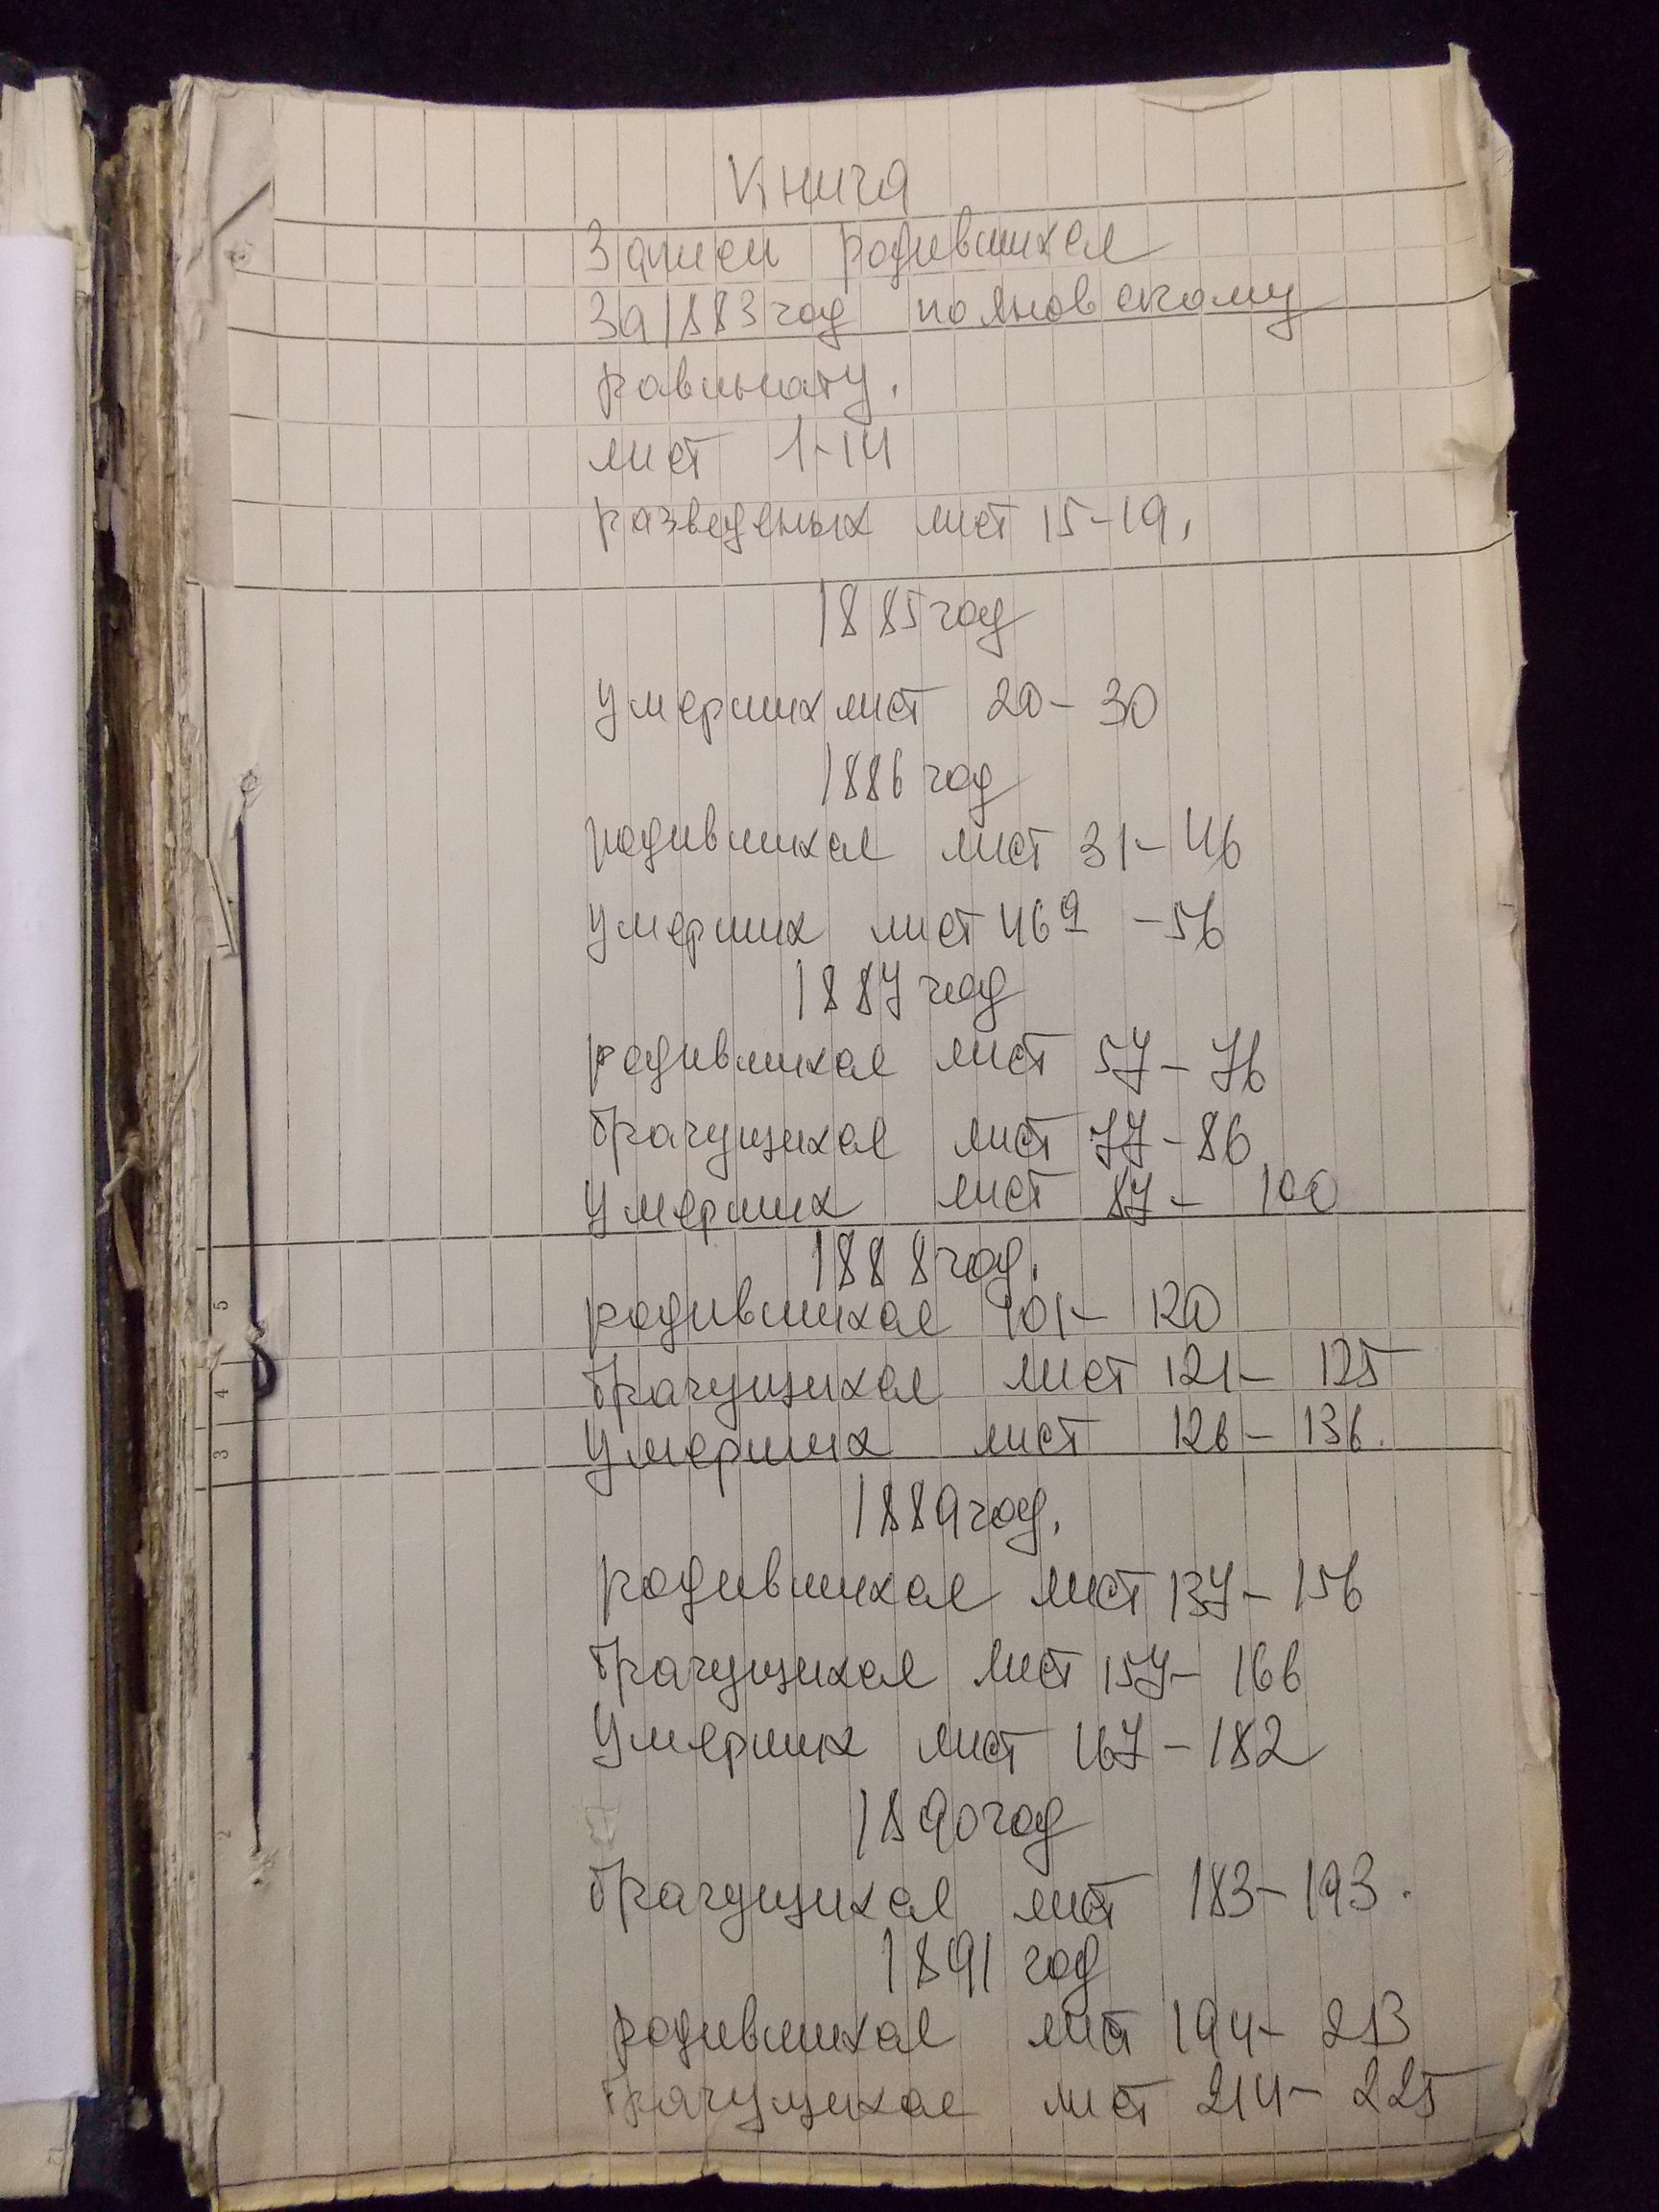 Книга
Записи родившихся
за 1883 год по Яновскому
равинату.
лист 1-14
разведеных лист 15-19.
1885 год
умерших лист 20-30
1886 год
родившихся лист 31-46
умерших лист 46а -56
1887 год
родившихся лист 57-76
брачущихся лист 77-86
умерших лист 87-100
1888 год.
родившихся 101-120
брачущихся лист 121-125
умерших лист 126-136.
1889 год.
родившихся лист 137-156
брачущихся лист 157-166
умерших лист 167-182
1890 год
брачущихся лист 183-193.
1891 год
родившихся лист 194-213
брачущихся лист 214-225
5
4
3
2